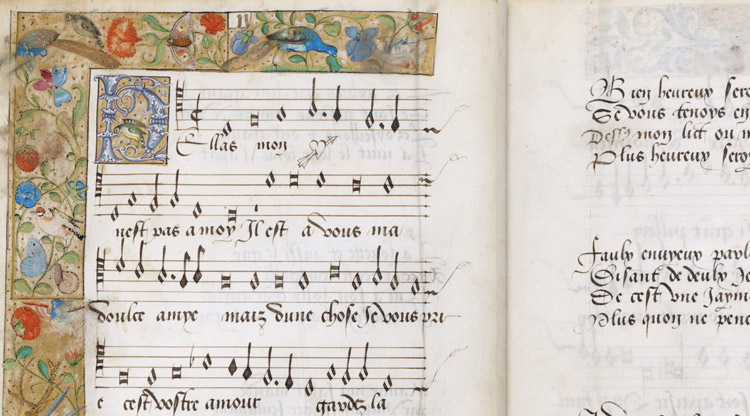 Hellas mon
nest pas a moy Il est a vous ma
doulce amye maiz dune chose Je vous pri
e cest vostre amour gardez la
Bien heureux sero
Se vous tenoys en
Dess mon lict ou m
Plus heureux seroy
Faulx envyeux parl
Disant de deulx Je
De cest vne Jaym
Plus quon ne pene